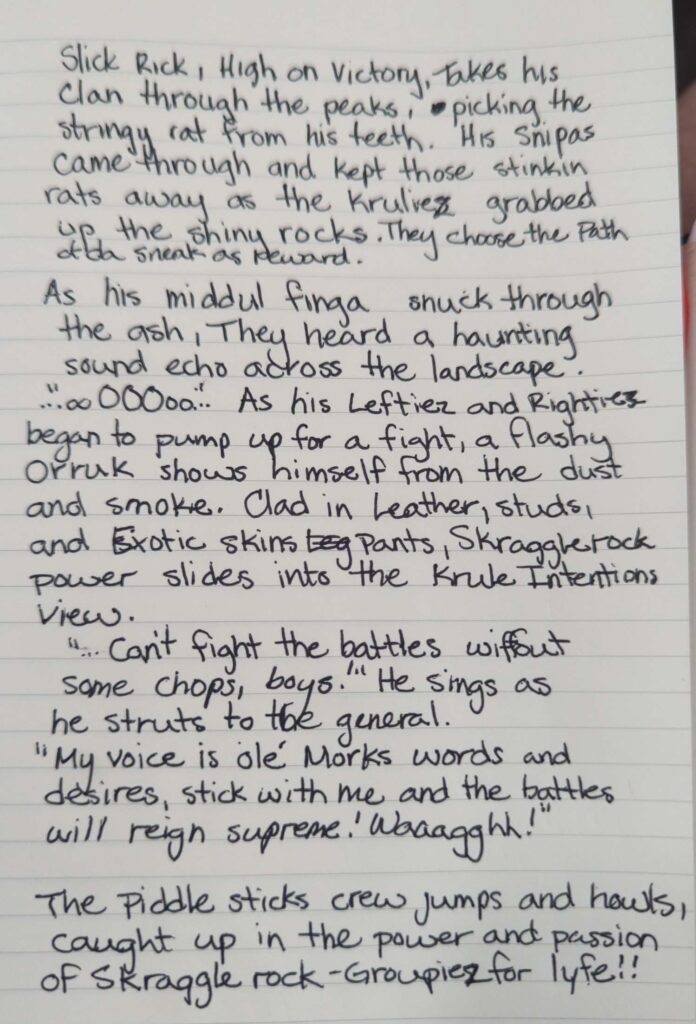 Slick Rick, High on Victory, Takes his
Clan through the peaks, picking the
stringy rat from his teeth. His Snipas
came through and kept those stinkin
rats away as the Kruliez grabbed
up the shiny rocks. They choose the Path
of da sneak as reward.
As his middul finga snuck through
the ash, They heard a haunting
sound echo across the landscape.
"...ooOOOoo..." As his Leftiez and Rightiez
began to pump up for a fight, a flashy
Orruk shows himself from the dust
and smoke. Clad in Leather, studs,
and Exotic skins pants, Skragglerock
power slides into the Krule Intentions
view.
"... Can't fight the battles wiffout
some chops, boys!" He sings as
he struts to the general.
"My voice is ole' Morks words and
desires, stick with me and the battles
will reign supreme! Waaagghh!"
The Piddle sticks crew jumps and howls,
caught up in the power and passion
of Skraggle rock - Groupiez for lyfe!!